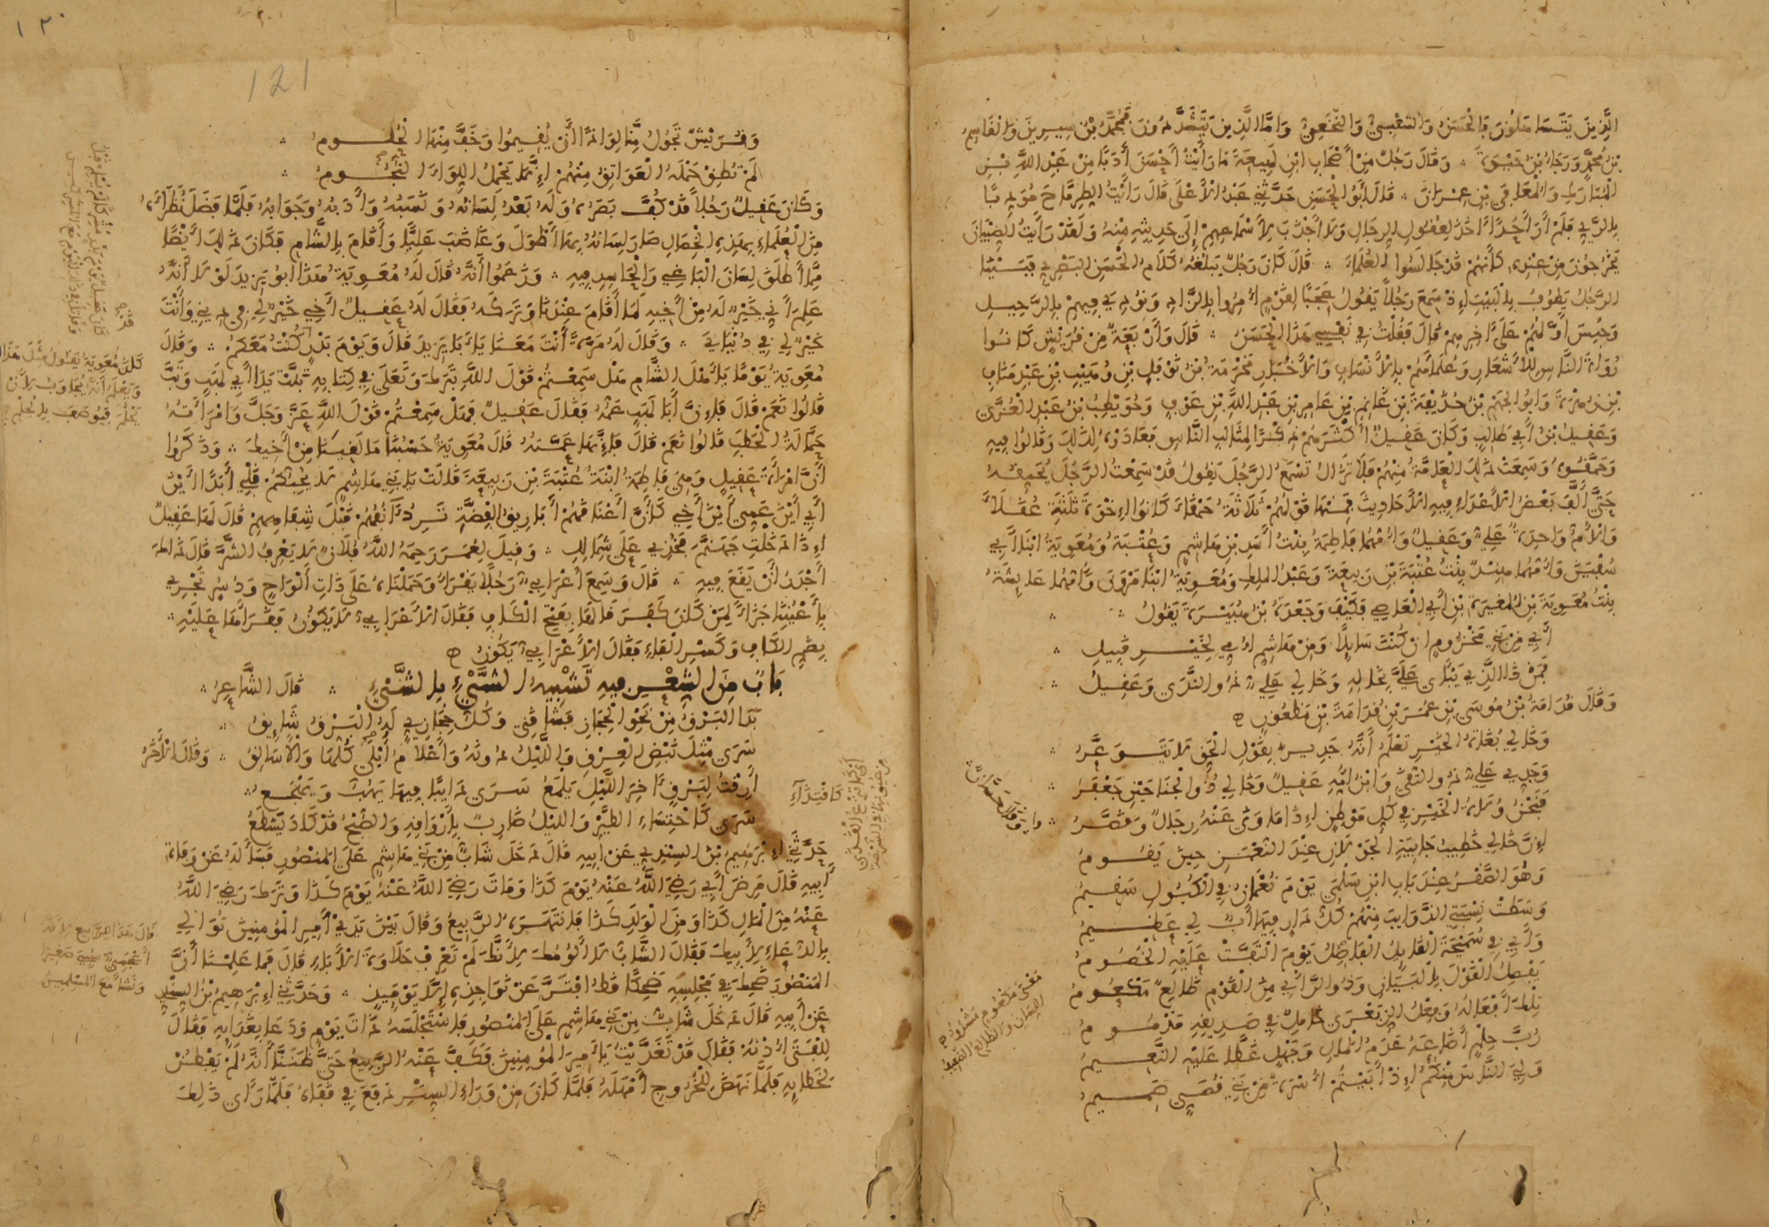 الذين يتسامحون فالحسن والشعبي والنخعي واما الذين يتشددون فمحمد بن سيرين والقاسم
بن محمد ورجاء بن حيوة وقال رجل من اصحاب ابن لهيعة ما رأيت احسن أدبا من عبد الله بن
المبارك والمعافى بن عمران قال ابو الحسن حدثني عبد الاعلى قال رأيت الطرماح مؤدبا
بالري فلم أر أحدا آخذ لعقول الرجال ولا أجذب لأسماعهم إلى حديثه منه ولقد رأيت الصبيان
يخرجون من عنده كأنهم قد جالسوا العلماء قال كان رجل يبلغه كلام الحسن البصري فبينا
الرجل يطوف بالبيت إذ سمع رجلا يقول عجبا لقوم أمروا بالزاد ونودي فيهم بالرحيل
وحبس أولهم على آخرهم قال فقلت في نفسي هذا الحسن قال وأربعة من قريش كانوا
رواة الناس للأشعار وعلماءهم بالأنساب والأخبار مخرمة بن نوفل بن وهيب بن عبد مناف
بن زهرة وابو الجهم بن حذيفة بن غانم بن عامر بن عبد الله بن عوف وحويطب بن عبد العزى
وعقيل بن أبي طالب وكان عقيل أكثرهم ذكرا لمثالب الناس فعادوه لذلك وقالوا فيه
وحمقوه وسمعت ذلك العامة منهم فلا تزال تسمع الرجل يقول قد سمعت الرجل يحمقه
حتى ألف بعض الأعداء فيه الأحاديث فمنها قولهم ثلاثة حمقاء كانوا إخوة ثلثة عقلاء
والأم واحدة علي وعقيل وأمهما فاطمة بنت أسد بن هاشم وعتبة ومعوية ابنا أبي
سفين وأمهما هند بنت عتبة بن ربيعة وعبد الملك ومعوية ابنا مروان وأمهما عايشة
بنت معوية بن المغيرة بن أبي العاصي فكيف وجعدة بن هبيرة يقول
أبي من بني مخزوم ان كنت سايلا ومن هاشم أمي لخير قبيل
فمن ذا الذي يباى علي بخاله وخالي علي ذو الندى وعقيل
وقال قدامة بن موسى بن عمر بن قدامة بن مظعون
وخالي بغاة الخير تعلم أنه جدير بقول الحق لا يتوعر
وجدي علي ذو التقى وابن أمه عقيل وخالي ذو الجناحين جعفر
فنحن ولاة الخير في كل موطن إذا ما ونى عنه رجال وقصروا
إن خالي خطيب جابية الجولان عند النعمن حين يقوم
وهو الصقر عند باب ابن سلمى يوم نعمان في الكبول سقيم
وسطت نسبتي الذوايب منهم كل دار فيها أب لي عظيم
وأبي في سميحة القايل الفاصل يوم التقت عليه الخصوم
يفصل القول بالبيان وذو الرأي من القوم ظالع مكعوم
تلك أفعاله وفعل الزبعرى خامل في صديقه مذموم
رب حلم أضاعه عدم المال وجهل غطا عليه النعيم
ولي الناس منكم إذ أبيتم أسرة من بني قصي صميم
121
وقريش تجول منا لواذا أن يقيموا وخف منها الحلوم
لم تطق حمله العواتق منهم إنما يحمل اللواء النجوم
وكان عقيل رجلا قد كف بصره وله بعد لسانه ونسبه وأدبه وجوابه فلما فضل نظراءه
من العلماء بهذه الخصال صار لسانه بها أطول وغاضب عليا وأقام بالشام فكان ذلك أيضا
مما أطلق لسان الباغي والحاسد فيه وزعموا أنه قال له معوية هذا ابو يزيد لولا أنه
علم أني خير له من أخيه لما أقام عندنا وتركه فقال له عقيل أخي خير لي في ديني وأنت
خير لي في دنياي وقال له مرة أنت معنا يا با يزيد قال ويوم بدر كنت معكم وقال
معوية يوما يا أهل الشام هل سمعتم قول الله تبرك وتعلى في كتابه تبت يدا أبي لهب وتب
قالوا نعم قال فإن أبا لهب عمه فقال عقيل فهل سمعتم قول الله عز وجل وامرأته
حمالة الحطب قالوا نعم قال فإنها عمته قال معوية حسبنا ما لقينا من أخيك وذكروا
أن امرأة عقيل وهي فاطمة ابنة عتبة بن ربيعة قالت يا بني هاشم لا يحبكم قلبي أبدا أين
أبي أين عمي أين أخي كأن أعناقهم أباريق الفضة ترد أنفهم قبل شفاههم قال لها عقيل
إذا دخلت جهنم فخذي على شمالك وقيل لعمر رحمه الله فلان لا يعرف الشر قال ذلك
أجدر أن يقع فيه قال وسمع أعرابي رجلا يقرأ وحملناه على ذات ألواح ودسر تجري
بأعيننا جزاء لمن كان كفر قالها بفتح الكاف فقال الأعرابي لا يكون فقرأها عليه
بضم الكاف وكسر الفاء فقال الأعرابي يكون
باب من الشعر فيه تشبيه الشيء بالشيء قال الشاعر
بدا البرق من نحو الحجاز فشاقني وكل حجازي له البرق شايق
سرى مثل نبض العرق والليل دونه وأعلام أبلى كلها والأسالق وقال الأخر
أرقت لبرق آخر الليل يلمع سرى دايبا فيها يهب ويهجع
سرى كاختساء الطير والليل ضارب بأرواقه والصبح قد كاد يسطع
حدثني إبرهيم بن السندي عن أبيه قال دخل شاب من بني هاشم على المنصور فسأله عن وفاة
أبيه قال مرض أبي رضي الله عنه يوم كذا ومات رضي الله عنه يوم كذا وترك رضي الله
عنه من المال كذا ومن الولد كذا فانتهره الربيع وقال بين يدي أمير المؤمنين توالي
بالدعاء لأبيك فقال الشاب لا ألومك لأنك لم تعرف حلاوة الأباء قال فما علمنا أن
المنصور ضحك في مجلسه ضحكا قط افتر عن نواجذه إلا يومين وحدثني إبرهيم بن السندي
عن أبيه قال دخل شاب من بني هاشم على المنصور فاستجلسه ذات يوم ودعا بغدايه فقال
للفتى أدنه فقال قد تغديت يا أمير المؤمنين فكف عنه الربيع حتى ظننا أنه لم يفطن
لخطايه فلما نهض للخروج أمهله فلما كان من وراء الستر دفع في قفاه فلما رأى ذلك